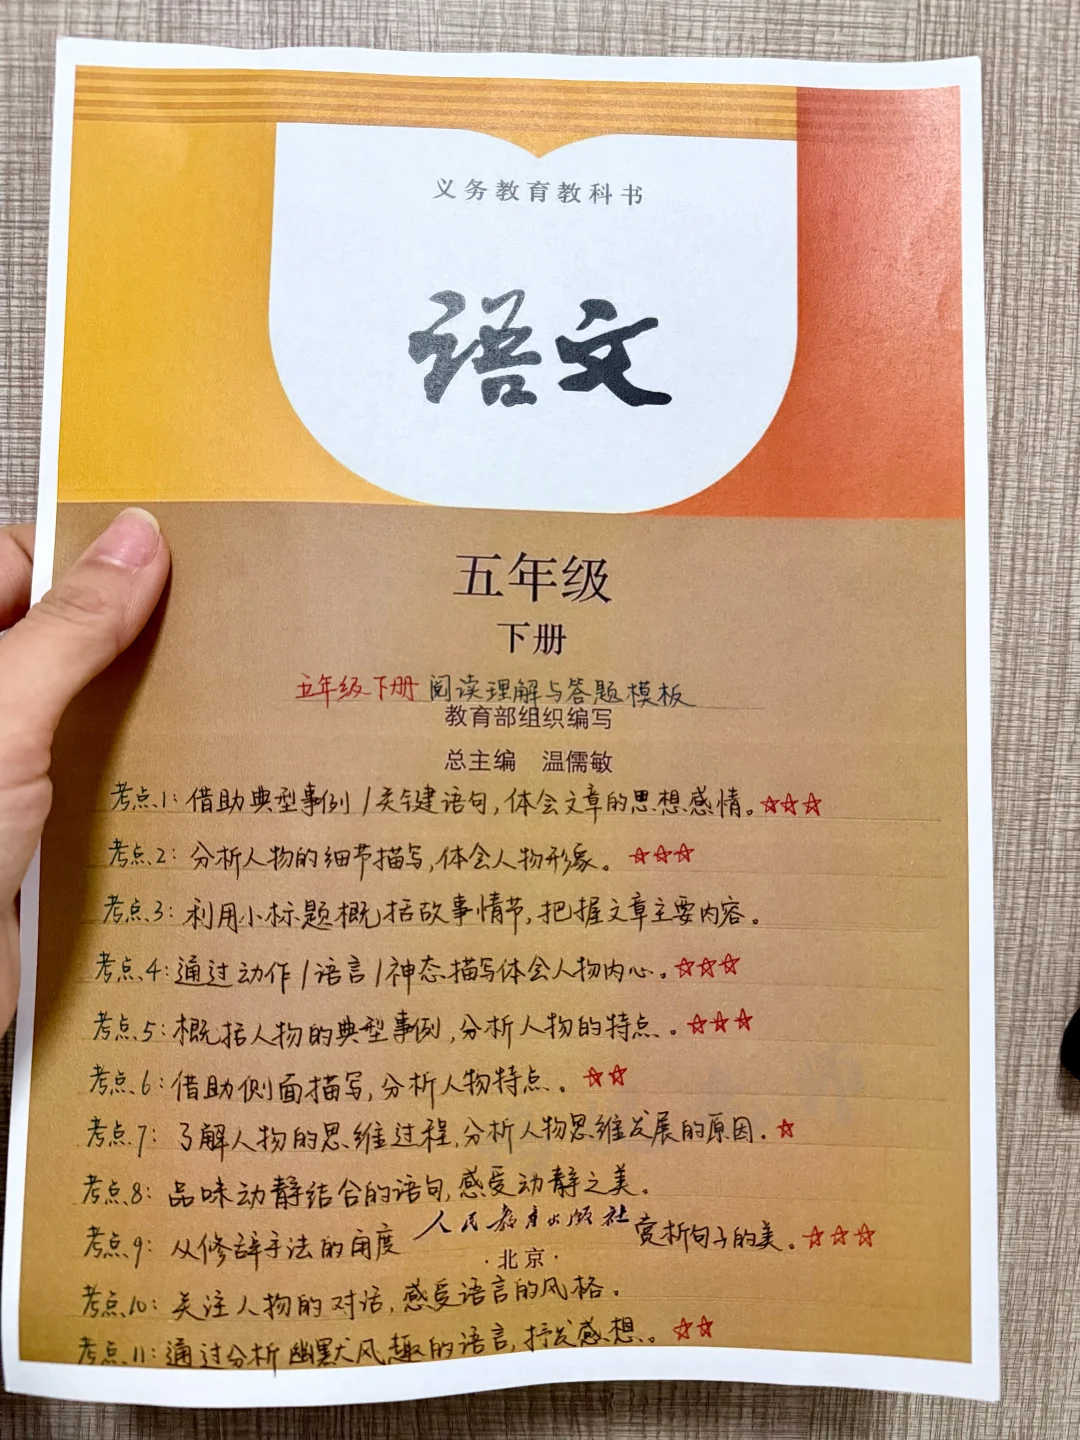 义务教育教科书
语文
五年级
下册
五年级下册 阅读理解与答题模板
教育部组织编写
总主编 温儒敏
考点1：借助典型事例/关键语句，体会文章的思想感情。☆☆☆
考点2：分析人物的细节描写，体会人物形象。☆☆☆
考点3：利用小标题概括故事情节，把握文章主要内容。
考点4：通过动作/语言/神态描写体会人物内心。☆☆☆
考点5：概括人物的典型事例，分析人物的特点。☆☆☆
考点6：借助侧面描写，分析人物特点。☆☆
考点7：了解人物的思维过程，分析人物思维发展的原因。☆
考点8：品味动静结合的语句，感受动静之美。
人民教育出版社
考点9：从修辞手法的角度 赏析句子的美。☆☆☆
·北京·
考点10：关注人物的对话，感受语言的风格。
考点11：通过分析幽默风趣的语言，抒发感想。☆☆